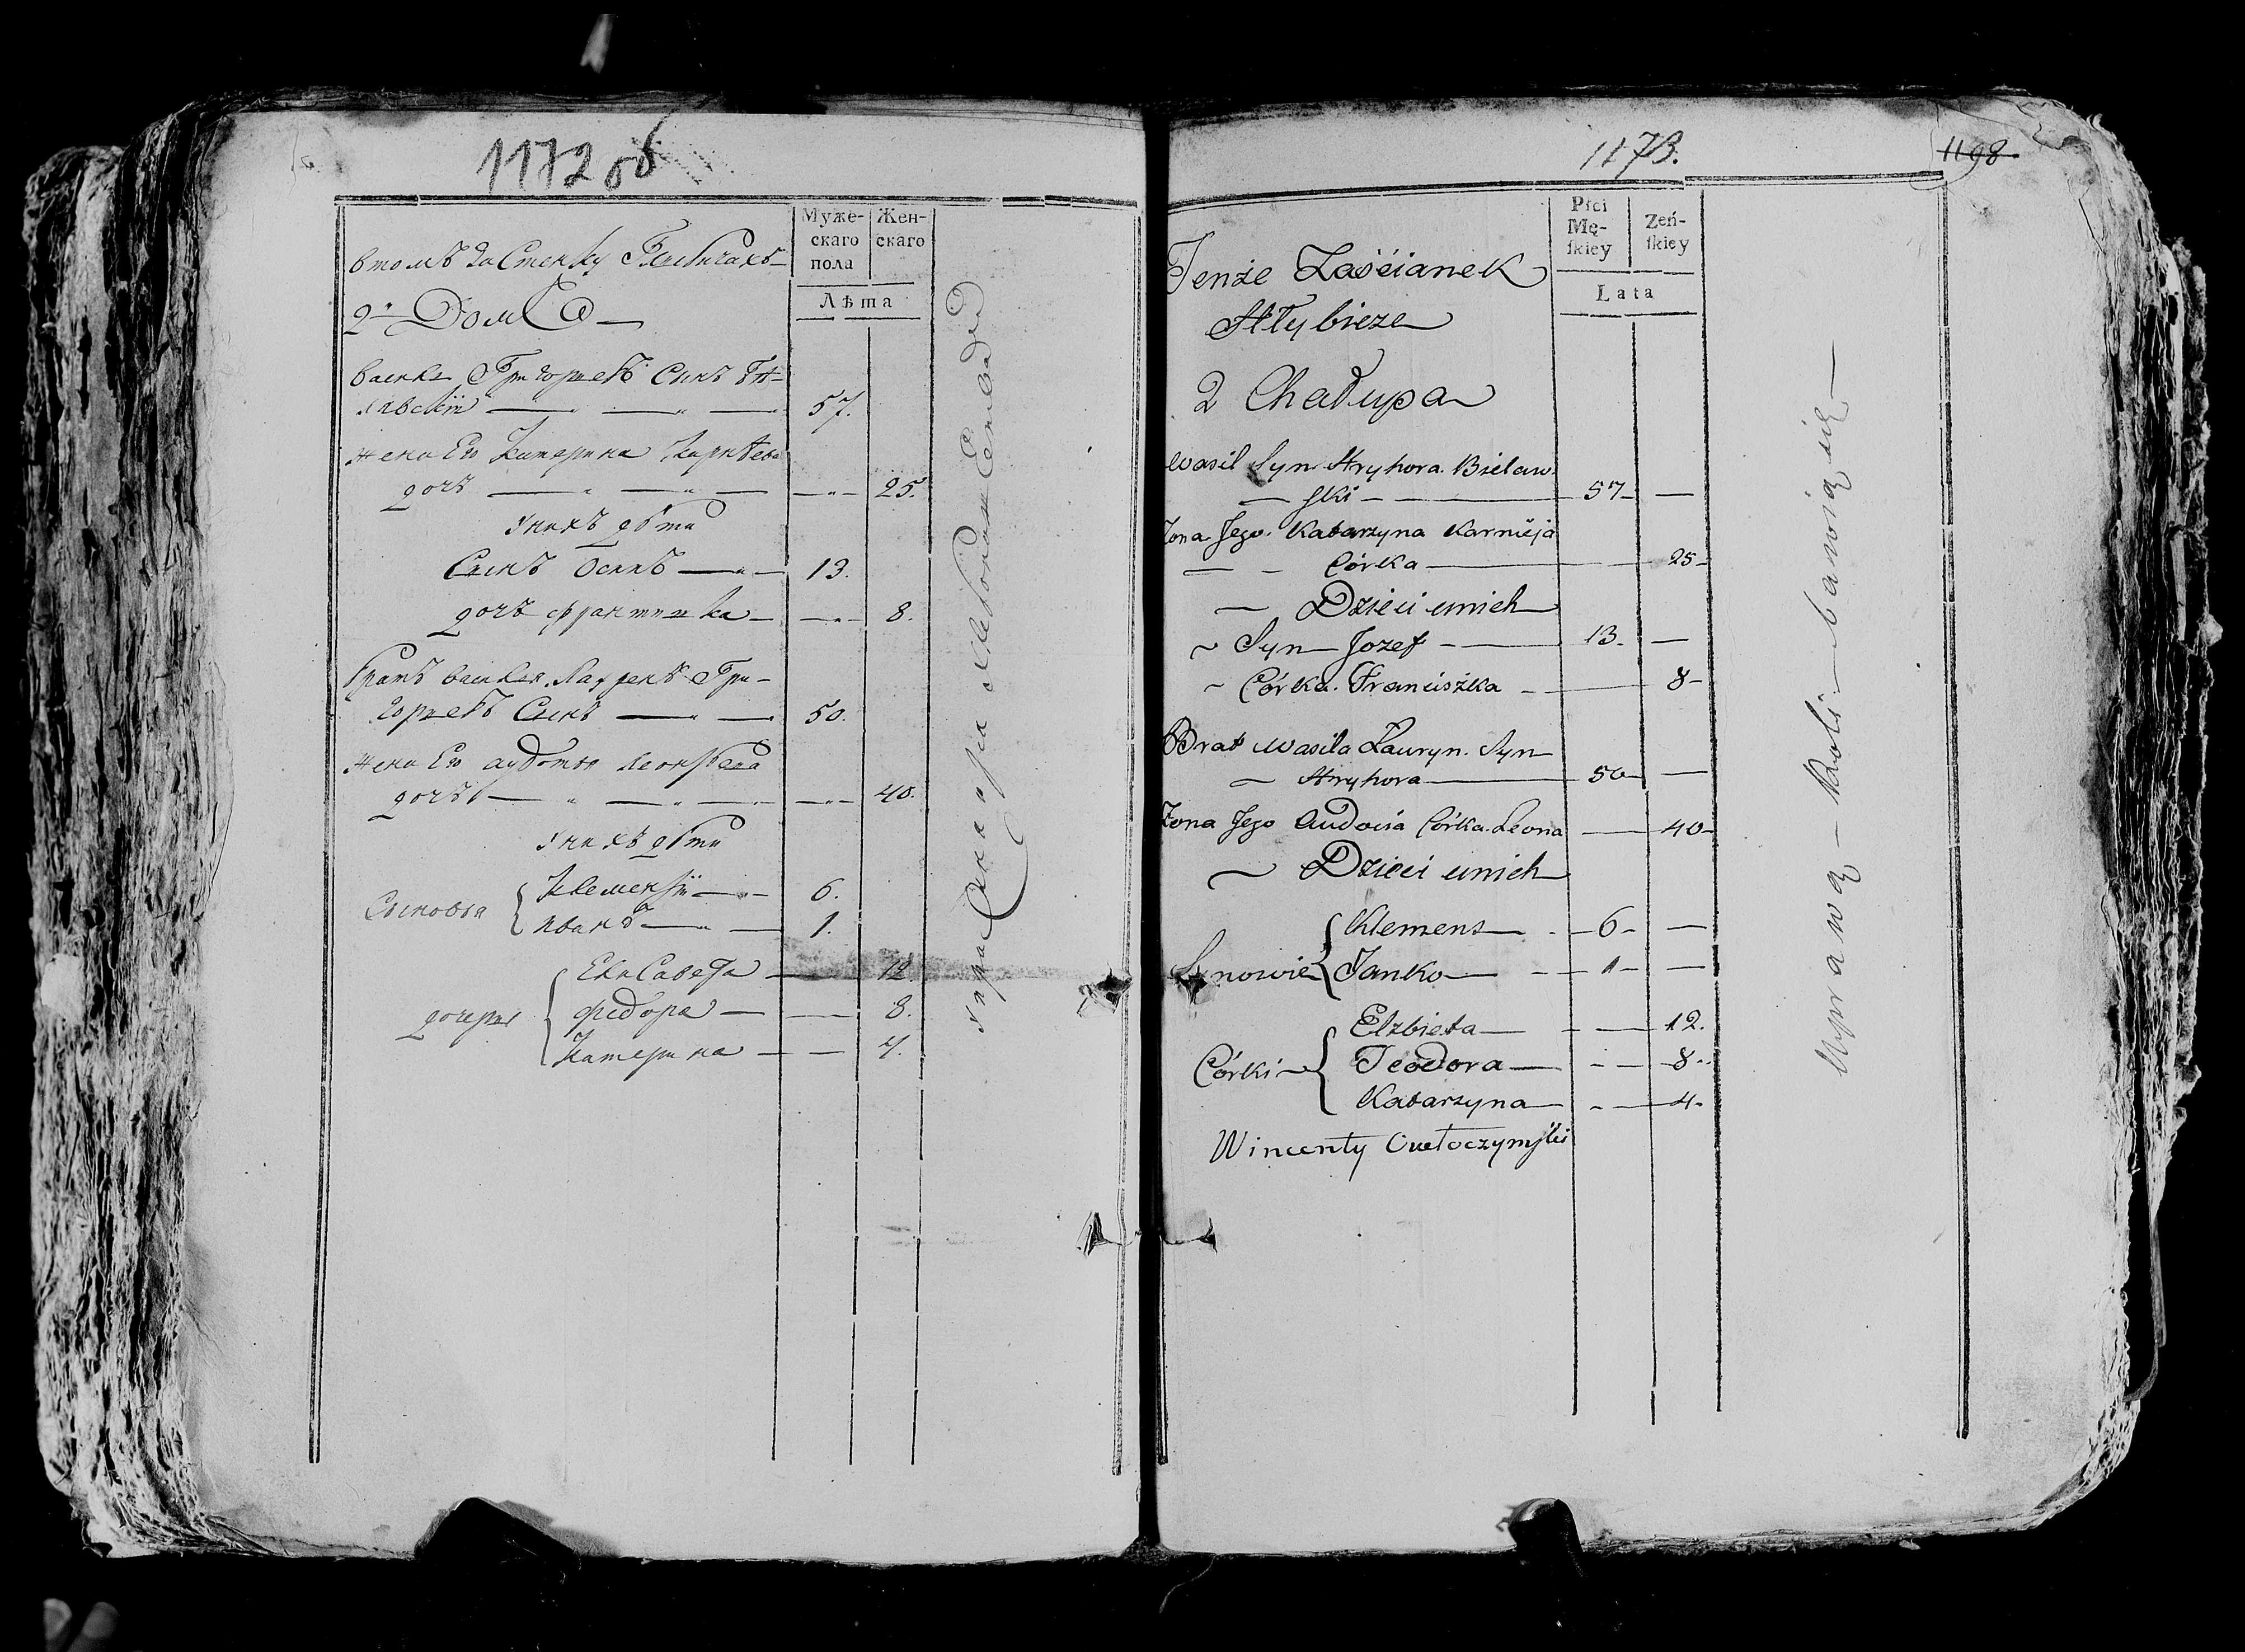 1172 об
Муже-
скаго
пола
Жен-
скаго
Лѣта
втомъ Застенку
2й Домъ
Васили Григорьевъ Сынъ Бѣ-
лявскiй 57.
Жена Его Катерина Карнѣева
дочь 25.
у нихъ дѣти
Сынъ Осипъ 13.
дочь Францишка 8.
Братъ Василия Лауренъ Гри-
горьевъ Сынъ 50.
Жена Его аудотья леонова
дочь 40.
у нихъ дѣти
Сыновья
Клеменсiй 6.
иванъ 1.
дочери
Елисавета 12
федора 8.
Катерина 4.
1173.
1198.
Płci
Mę-
skiey
Zeń-
skiey
Lata
Tenże Zaścianek
Hłybieze
2 Chałupa
Wasil Syn Hryhora Bielaw
ski 57 —
Zona Jego Katarzyna Karnieja
Córka 25
Dzieci unich
Syn Jozef 13 —
Córka Franciszka 8
Brat Wasila Lauryn Syn
Hryhora 50 —
Zona Jego Audocia Córka Leona 40
Dzieci unich
Synowie
Klemens 6 —
Janko 1 —
Córki
Elzbieta 12.
Teodora 8
Katarzyna 4
Wincenty
Uprawą — Roli — bawią się —